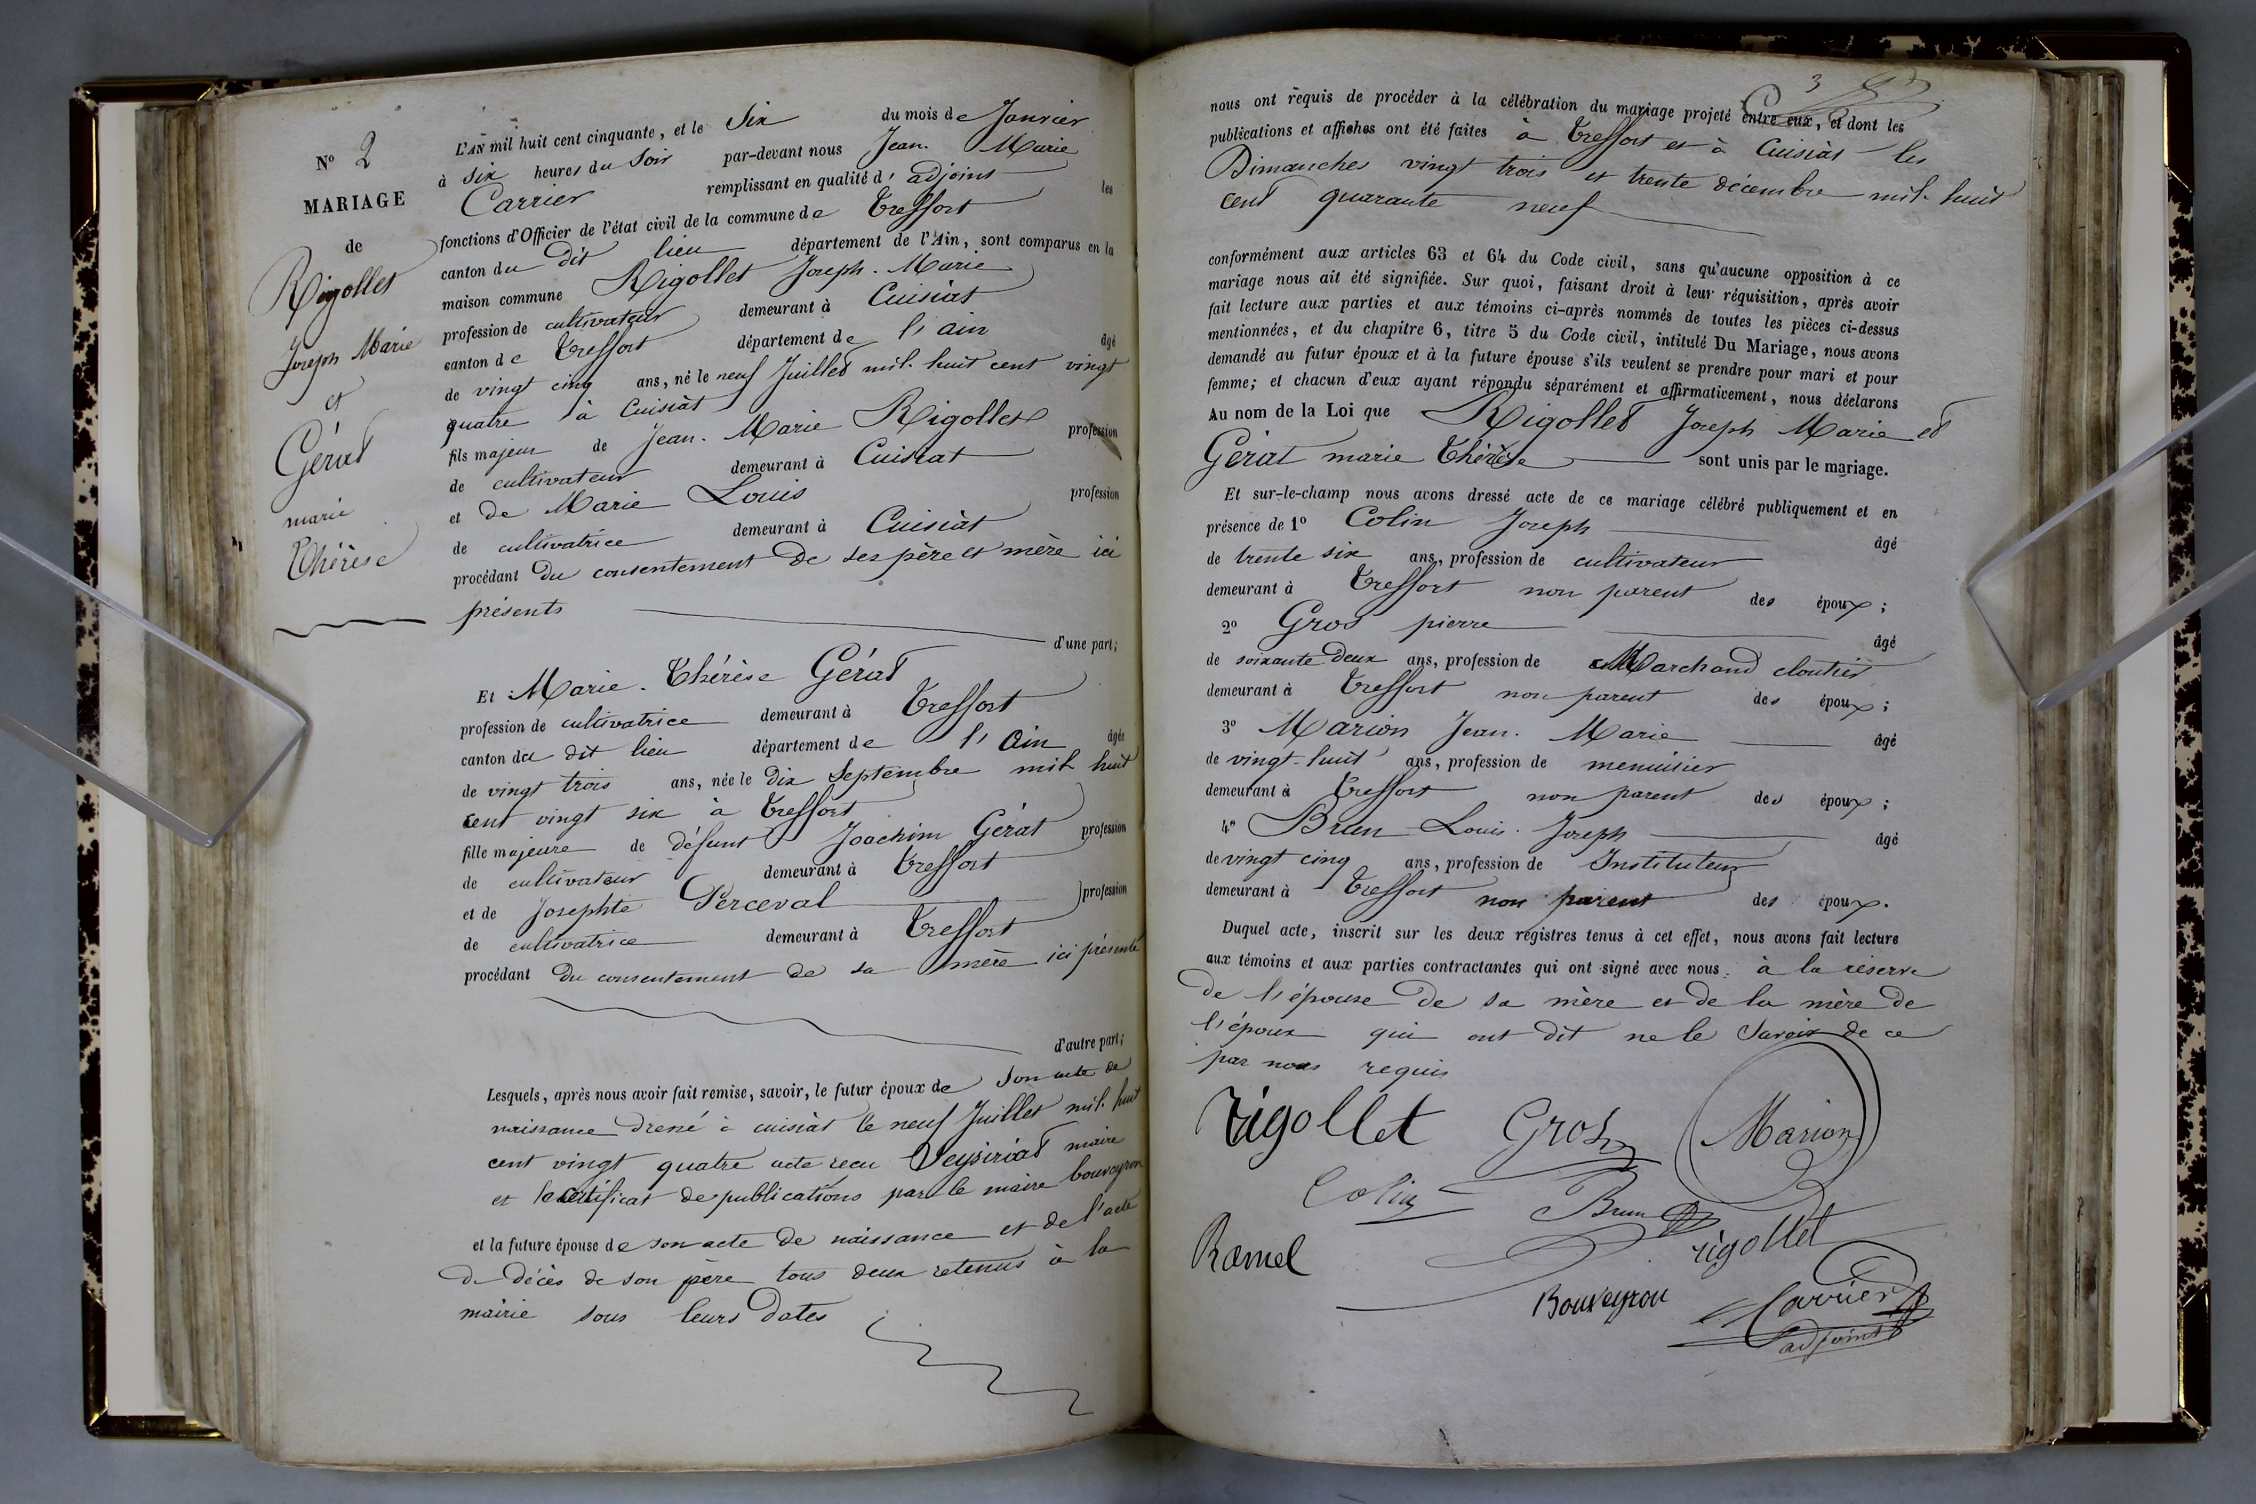 N° 2
MARIAGE
de
Rigollet
Joseph Marie
et
Gérat
marie
Thérèse
L'AN mil huit cent cinquante, et le Six du mois de Janvier
à six heures du Soir par-devant nous Jean. Marie
Carrier remplissant en qualité d' adjoint les
fonctions d'Officier de l'état civil de la commune de Treffort
canton du dit lieu département de l'Ain, sont comparus en la
maison commune Rigollet Joseph. Marie
profession de cultivateur demeurant à Cuisiat
canton de Treffort département de l'ain âgé
de vingt cinq ans, né le neuf Juillet mil. huit cent vingt
quatre à Cuisiat
fils majeur de Jean. Marie Rigollet profession
de cultivateur demeurant à Cuisiat
et de Marie Louis profession
de cultivatrice demeurant à Cuisiat
procédant du consentement de ses père et mère ici
présents
d'une part;
Et Marie. Thérèse Gérat
profession de cultivatrice demeurant à Treffort
canton du dit lieu département de l'Ain âgée
de vingt trois ans, née le dix Septembre mil huit
cent vingt six à Treffort
fille majeure de défunt Joachim Gérat profession
de cultivateur demeurant à Treffort
et de Josephte Perceval profession
de cultivatrice demeurant à Treffort
procédant du consentement de sa mère ici présente
d'autre part;
Lesquels, après nous avoir fait remise, savoir, le futur époux de son acte de
naissance dressé à cuisiat le neuf Juillet mil. huit
cent vingt quatre acte recu Veysiriat maire
et certificat de publications par le maire bouveyron
et la future épouse de son acte de naissance et de l'acte
de décès de son père tous deux retenus à la
mairie sous leurs dates
3
nous ont requis de procéder à la célébration du mariage projeté entre eux, et dont les
publications et affiches ont été faites à Treffort et à Cuisiat les
Dimanches vingt trois et trente décembre mil. huit
cent quarante neuf
conformément aux articles 63 et 64 du Code civil, sans qu'aucune opposition à ce
mariage nous ait été signifiée. Sur quoi, faisant droit à leur réquisition, après avoir
fait lecture aux parties et aux témoins ci-après nommés de toutes les pièces ci-dessus
mentionnées, et du chapitre 6, titre 5 du Code civil, intitulé Du Mariage, nous avons
demandé au futur époux et à la future épouse s'ils veulent se prendre pour mari et pour
femme; et chacun d'eux ayant répondu séparément et affirmativement, nous déclarons
Au nom de la Loi que Rigollet Joseph Marie et
Gérat marie Thérèse sont unis par le mariage.
Et sur-le-champ nous avons dressé acte de ce mariage célébré publiquement et en
présence de 1° Colin Joseph âgé
de trente six ans, profession de cultivateur
demeurant à Treffort non parent des époux;
2° Gros pierre âgé
de soixante deux ans, profession de Marchand cloutier
demeurant à Treffort non parent des époux;
3° Marion Jean. Marie âgé
de vingt-huit ans, profession de menuisier
demeurant à Treffort non parent des époux;
4° Brun Louis. Joseph âgé
de vingt cinq ans, profession de Instituteur
demeurant à Treffort non parent des époux.
Duquel acte, inscrit sur les deux registres tenus à cet effet, nous avons fait lecture
aux témoins et aux parties contractantes qui ont signé avec nous. à la réserve
de l'épouse de sa mère et de la mère de
l'époux qui ont dit ne le Savoir de ce
par nous requis
rigollet Gros Marion
Colin Brun
Ramel rigollet
Bouveyron Carrier
adjoint